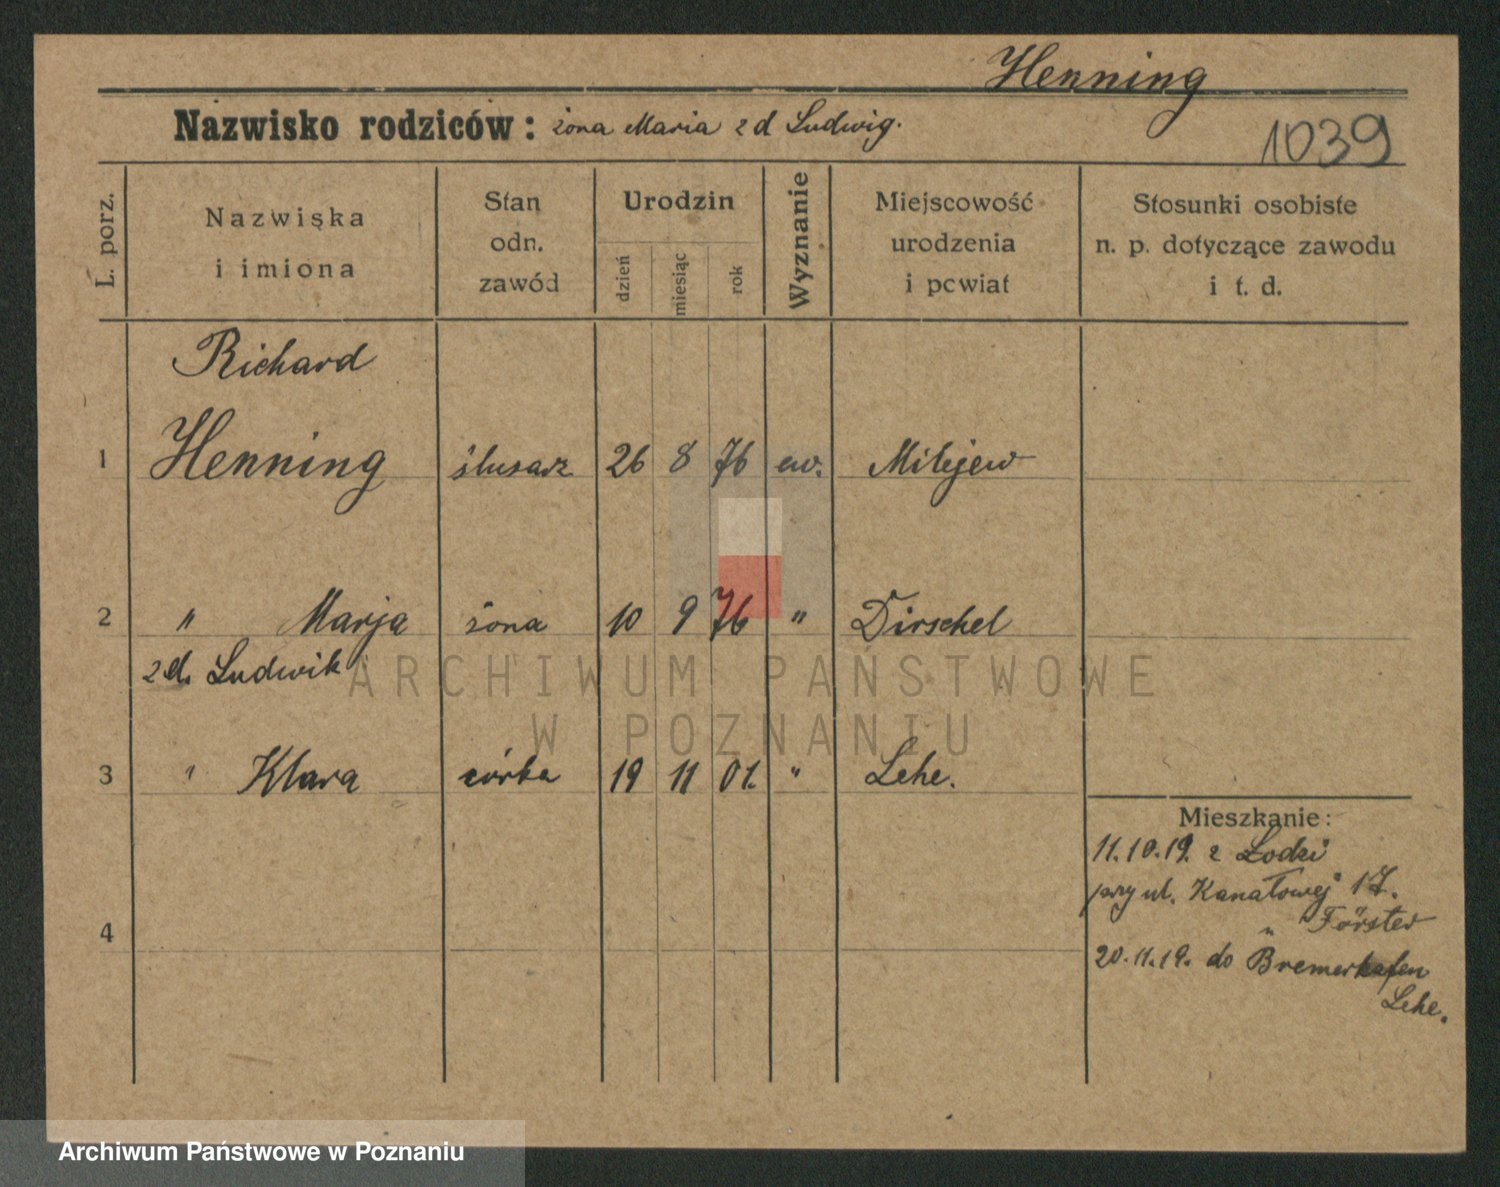 Henning
Nazwisko rodziców: żona Maria z d Ludwig.
1039
L. porz.
Nazwiska
i imiona
Stan
odn.
zawód
Urodzin
dzień
miesiąc
rok
Wyznanie
Miejscowość
urodzenia
i powiat
Stosunki osobiste
n. p. dotyczące zawodu
i t. d.
Richard
1 Henning ślusarz 26 8 76 ew. Milejew
2 " Marja żona 10 9 76 " Dirschel
z d. Ludwik
3 " Klara córka 19 11 01. " Lehe.
4
Mieszkanie:
11.10.19. z Łodzi
przy ul. Kanałowej 17.
" Förster
20.11.19. do Bremerhafen
Lehe.
ARCHIWUM PAŃSTWOWE
W POZNANIU
Archiwum Państwowe w Poznaniu